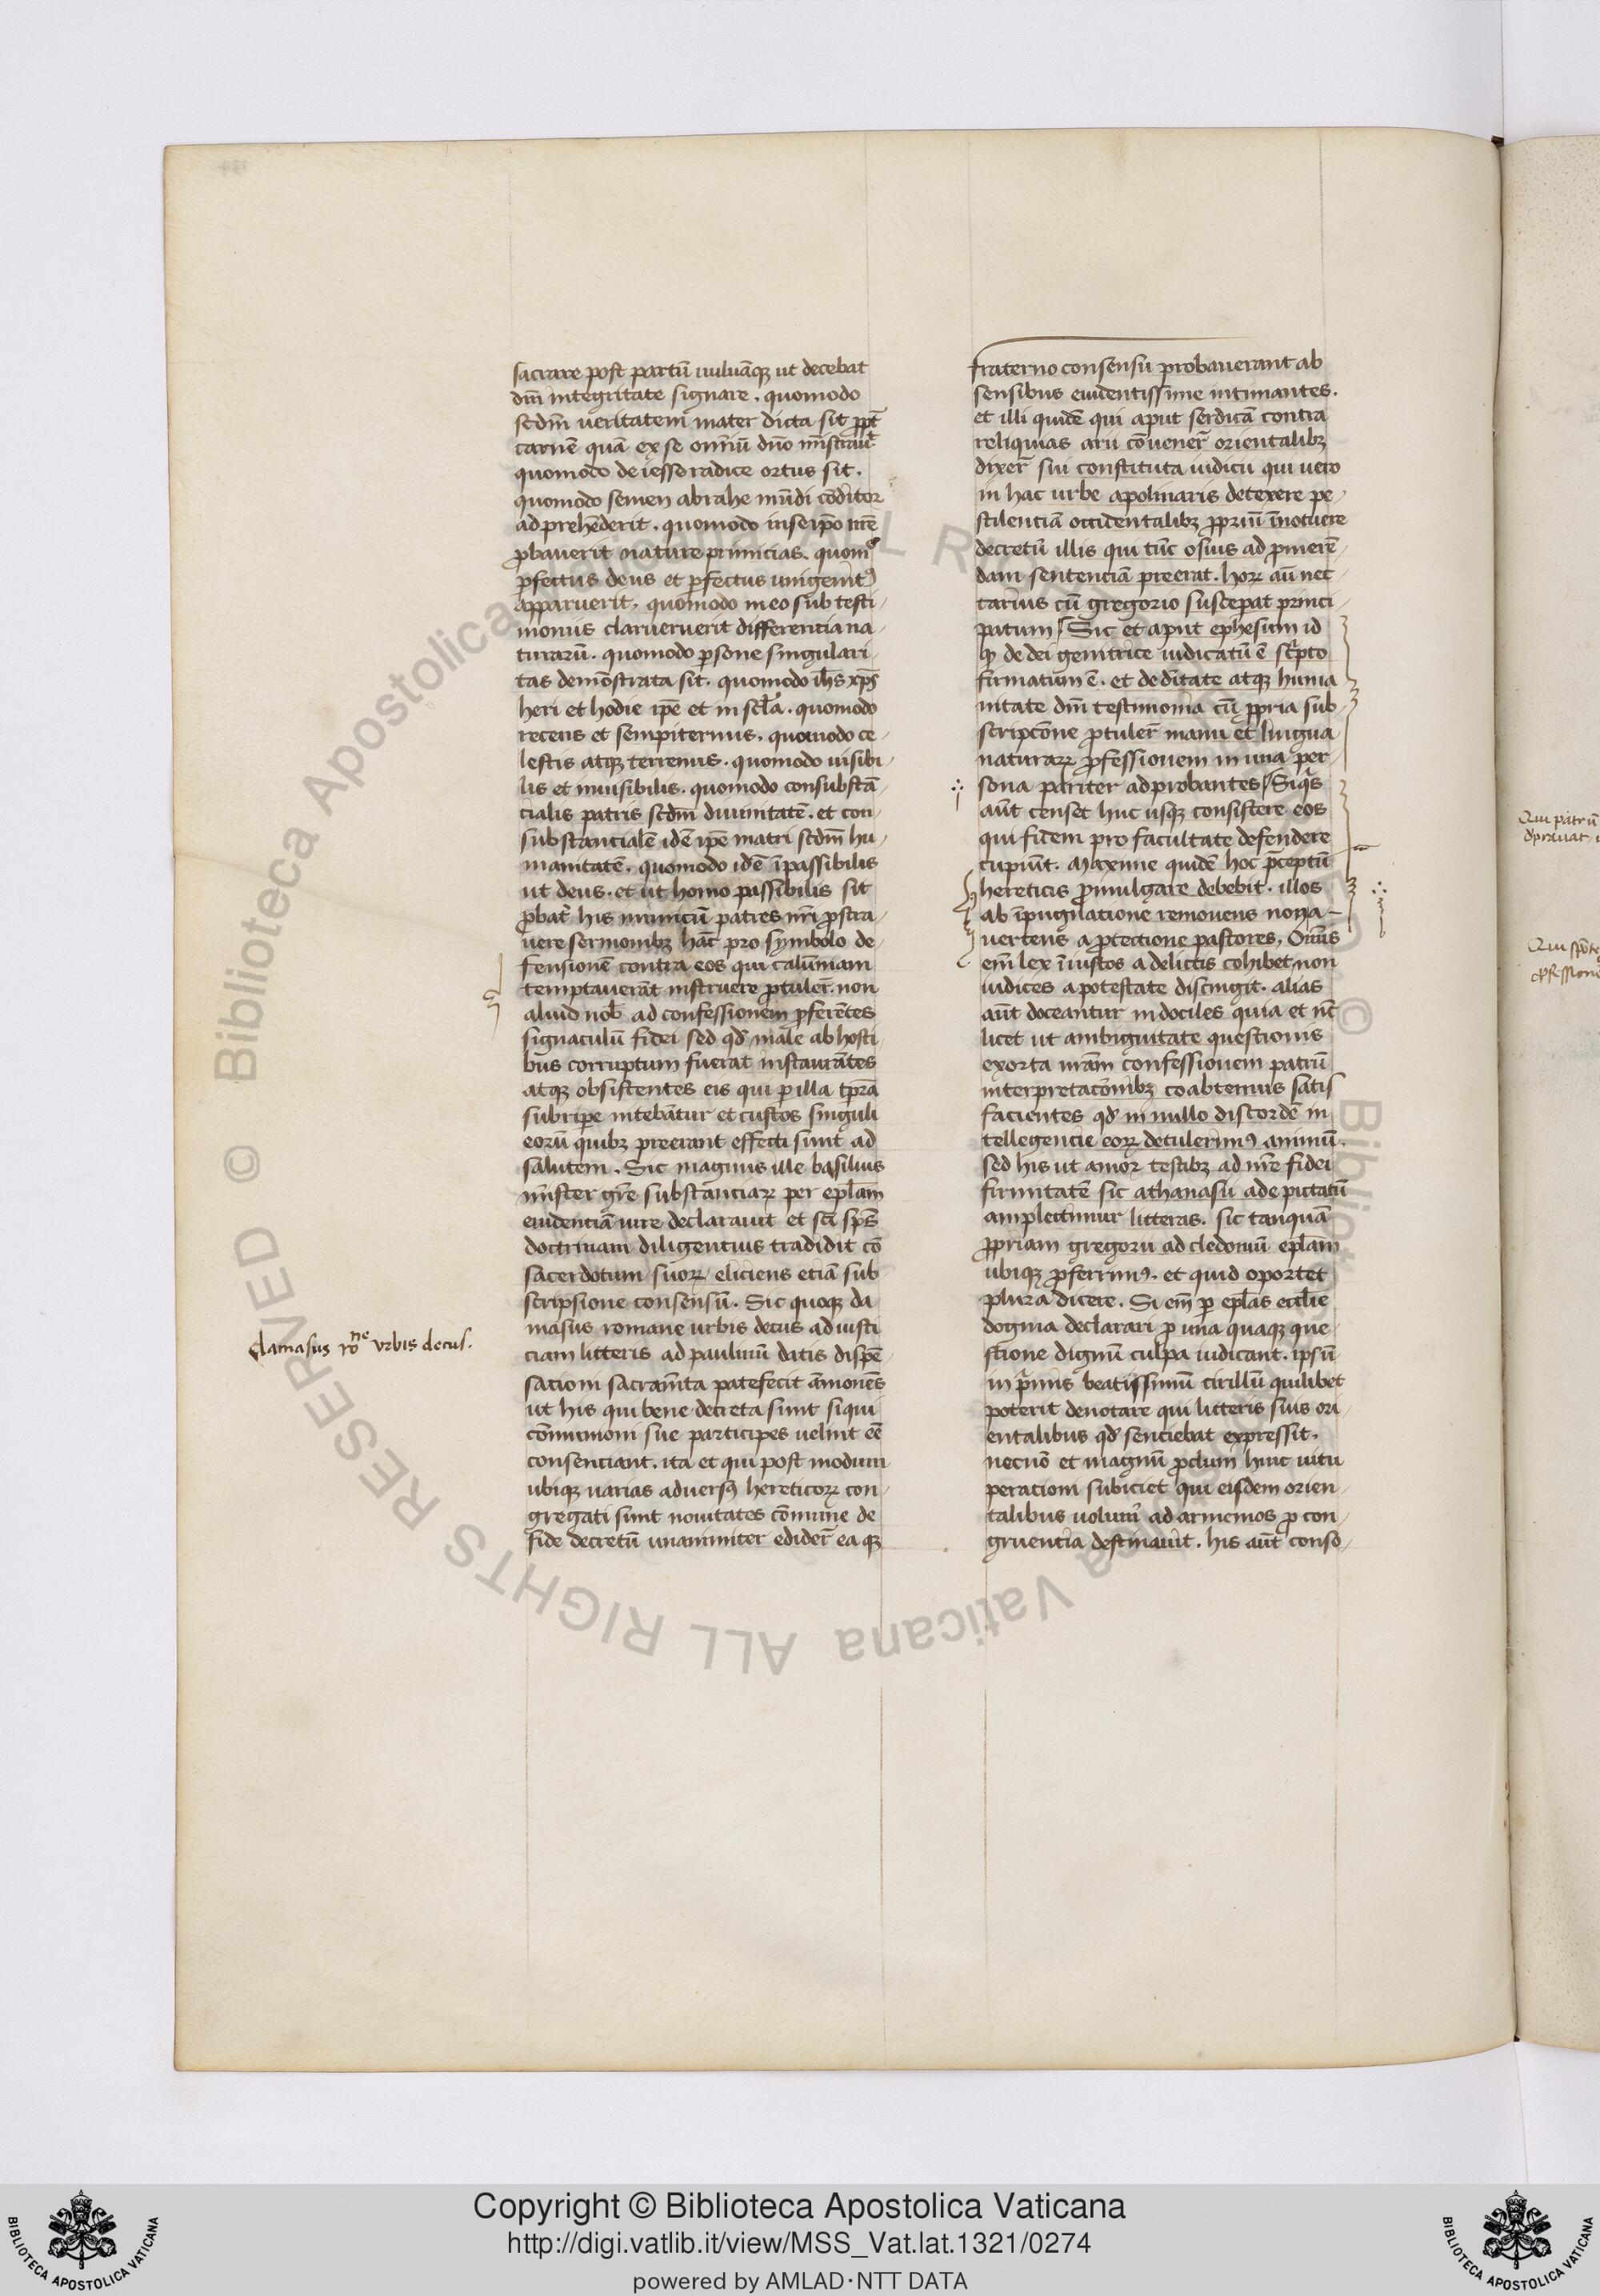 sacrare post partū uuluāq; ut decebat
dm̄ integritate signare . quomodo
scdm̄ ueritatem mater dicta sit ppt̄
carnē quā ex se omīu dn̄o mīstrauit
quomodo de iesse radice ortus sit .
quomodo semen abrahe mūdi cōditor
adprehēderit . quomodo in seip̄o nr̄e
ꝓbauerit nature primicias . quomº
ꝑfectus deus et ꝑfectus unigenitꝰ
apparuerit . quomodo in eo sub testi-
moniis claruerit differentia na-
turarū . quomodo ꝑsone singulari-
tas demōstrata sit . quomodo ih̄s xp̄s
heri et hodie ip̄e et in scl̄a . quomodo
recens et sempiternus . quomodo ce-
lestis atq; terrenus . quomodo uisibi-
lis et inuisibilis . quomodo consubstā-
cialis patris scdm̄ diuinitatē . et con-
substancialē idē ip̄e matri scdm̄ hu-
manitatē . quomodo idē īpassibilis
ut deus . et ut homo passibilis sit
ꝓbat̄ his inimicū patres nr̄i ꝓstra-
uere sermonibꝫ hāc pro symbolo de-
fensionē contra eos qui calūniam
temptauerāt instruere ꝓtuler̄ . non
aliud nob̄ ad confessionem ꝓferētes
signaculū fidei sed qd̄ male ab hosti-
bus corruptum fuerat instaurātes
atq; obsistentes eis qui ꝑ illa tp̄ra
subripe nitebātur et custos singuli
eorū quibꝫ preerant effecti sunt ad
salutem . Sic magnus ille basilius
mīster gr̄e substanciaꝝ per epl̄am
euidenciā iure declarauit et sc̄i sp̄s
doctrinam diligentius tradidit cō
sacerdotum suoꝝ eliciens etiā sub
scripsione consensū . Sic quoq; da
masus romane urbis decus ad iusti
ciam litteris ad paulinū datis dispē-
sationi sacram̄ta patefecit āmonēs
ut his qui bene decreta sunt siqui
cōmunioni sue participes uelint eē
consenciant . ita et qui post modum
ubiq; uarias aduersꝰ hereticoꝝ con-
gregati sunt nouitates cōmune de
fide decretū unanimiter edider̄ ea q;
Damasus roⁿᵉ urbis decus.
fraterno consensu probauerant ab
sensibus euidentissime intimantes .
et illi quidē qui aput serdicā contra
reliquias arii cōuener̄ orientalibꝫ
dixer̄ sui constituta iudicii qui uero
in hac urbe apolinaris detexere pe-
stilenciā occidentalibꝫ ꝓpriū īnotuere
decretū illis qui tūc osius ad ꝓmerē-
dam sentenciā preerat . hoꝝ aū nec-
tarius cū gregorio suscepat princi-
patum / Sic et aput ephesum id
qꝫ de dei genitrice iudicatū ē scͥpto
firmatum ē . et de dītate atq; huma
nitate dn̄i testimonia cū ꝓpria sub-
scripcōne ꝓtuler̄ manu et lingua
naturaꝝ ꝓfessionem in una per-
sona pariter adprobantes / Siqͥs
aūt censet huc usq; consistere eos
qui fidem pro facultate defendere
cupiūt . Maxime quidē hoc p̄ceptū
hereticis ꝓmulgare debebit . illos
ab īpugnatione remouens non a-
uertens a ꝓtectione pastores . Om̄is
em̄ lex īiustos a delictis cohibet non
iudices a potestate discingit . alias
aūt doceantur indociles quia et nc̄
licet ut ambiguitate questionis
exorta nr̄am confessionem patrū
interpretacōnibꝫ coabtemus satis
facientes qd̄ in nullo discordē in
tellegencie eoꝝ detulerimꝰ animū .
sed his ut amor testibꝫ ad nr̄e fidei
firmitatē sic athanasii ad epictatū
amplectimur litteras . sic tanquā
ꝓpriam gregorii ad cledoniū epl̄am
ubiq; ꝓferrimꝰ . et quid oportet
plura dicere . Si em̄ ꝑ epl̄as eccl̄ie
dogma declarari ꝓ una quaq; que
stione dignū culpa iudicant . ipsū
in pͥmis beatissimū cirillū quilibet
poterit denotare qui litteris suis ori
entalibus qd̄ senciebat expressit .
necnō et magnū ꝓclum huic uitu
perationi subiciet qui eisdem orien-
talibus uolum̄ ad armenios ꝓ con-
gruentia destinauit . his aūt conso-
Qui patrū
dprauat
Qui spōte
ꝓfessione
Copyright © Biblioteca Apostolica Vaticana
http://digi.vatlib.it/view/MSS_Vat.lat.1321/0274
powered by AMLAD·NTT DATA
BIBLIOTECA APOSTOLICA VATICANA
BIBLIOTECA APOSTOLICA VATICANA
© Biblioteca Apostolica Vaticana ALL RIGHTS RESERVED